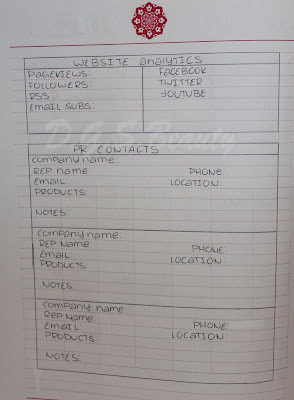 WEBSITE analytics
PAGEVIEWS:
FOLLOWERS:
RSS:
EMAIL SUBS:
FACEBOOK:
TWITTER
YOUTUBE
D.G.S Beauty
PR CONTACTS
Company name:
REP name PHONE
Email LOCATION:
PRODUCTS:
NOTES:
Company name:
REP Name PHONE:
Email: LOCATION:
PRODUCTS
NOTES:
Company name:
REP Name:
EMAIL PHONE:
PRODUCTS: LOCATION:
NOTES: